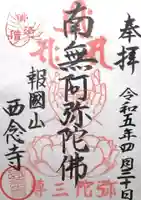 奉拝
令和五年四月三十日
南無阿弥陀佛
報國山
西念寺
弥陀三尊